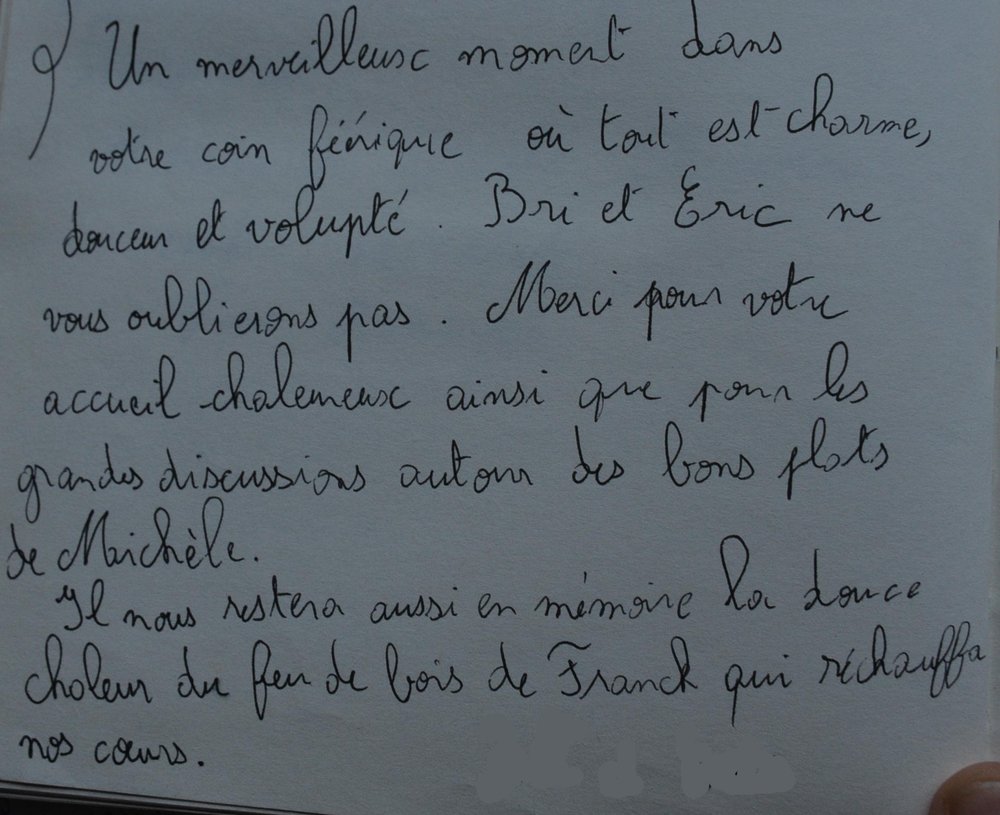 Un merveilleux moment dans
votre coin féérique où tout est charme,
douceur et volupté. Bri et Eric ne
vous oublierons pas. Merci pour votre
accueil chaleureux ainsi que pour les
grandes discussions autour des bons plats
de Michèle.
Il nous restera aussi en mémoire la douce
chaleur du feu de bois de Franck qui réchauffa
nos cœurs.